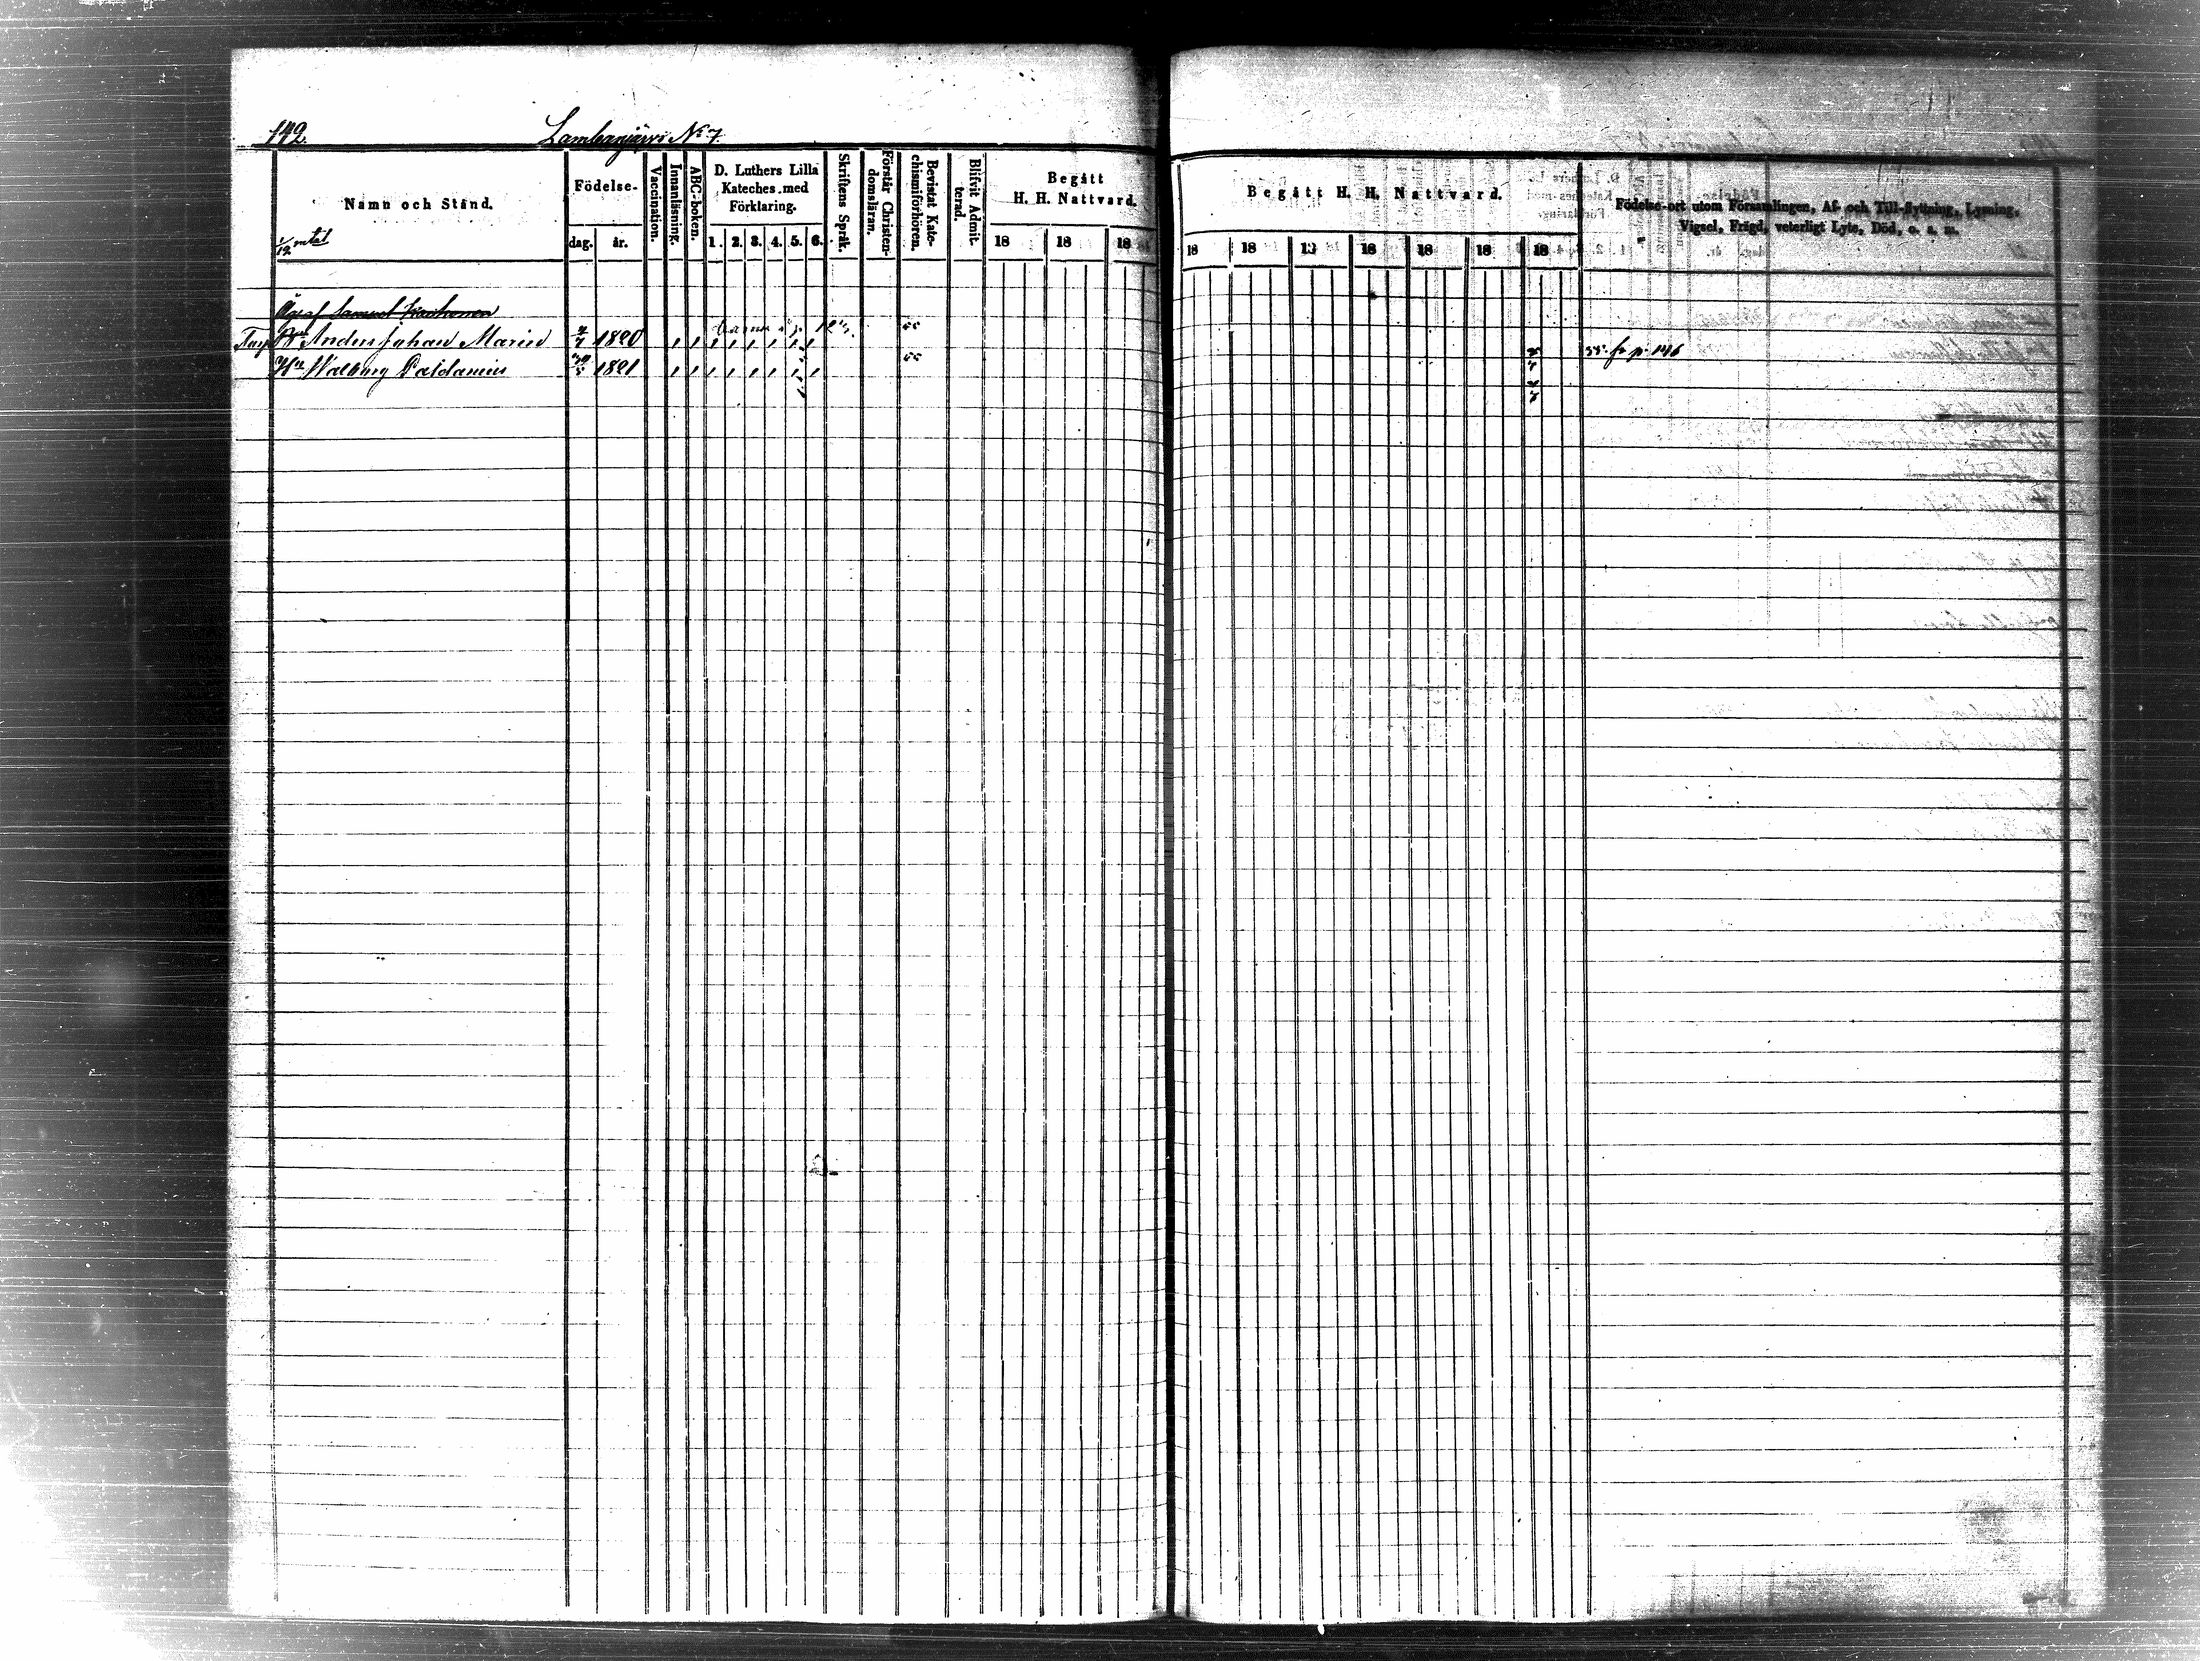 142. Lambanjärvi No 7.
Namn och Stånd.
1/12 mtal
Födelse-
dag. år.
Vaccination.
Innanläsning.
ABC-boken.
D. Luthers Lilla
Kateches med
Förklaring.
1. 2. 3. 4. 5. 6.
Skriftens Språk.
Förstår Christen-
domsläran.
Bevistat Kate-
chismiförhören.
Blifvit Admit-
terad.
Begått
H. H. Nattvard.
18 18 18
Begått H. H. Nattvard.
18 18 18 18 18 18 18
Födelse-ort utom Församlingen, Af- och Till-flyttning, Lysning,
Vigsel, Frägd, veterligt Lyte, Död, o. s. m.
Samuel
Anders Johan Marin 1820 55. fr p. 146
Hu Walborg Paldanius 1821